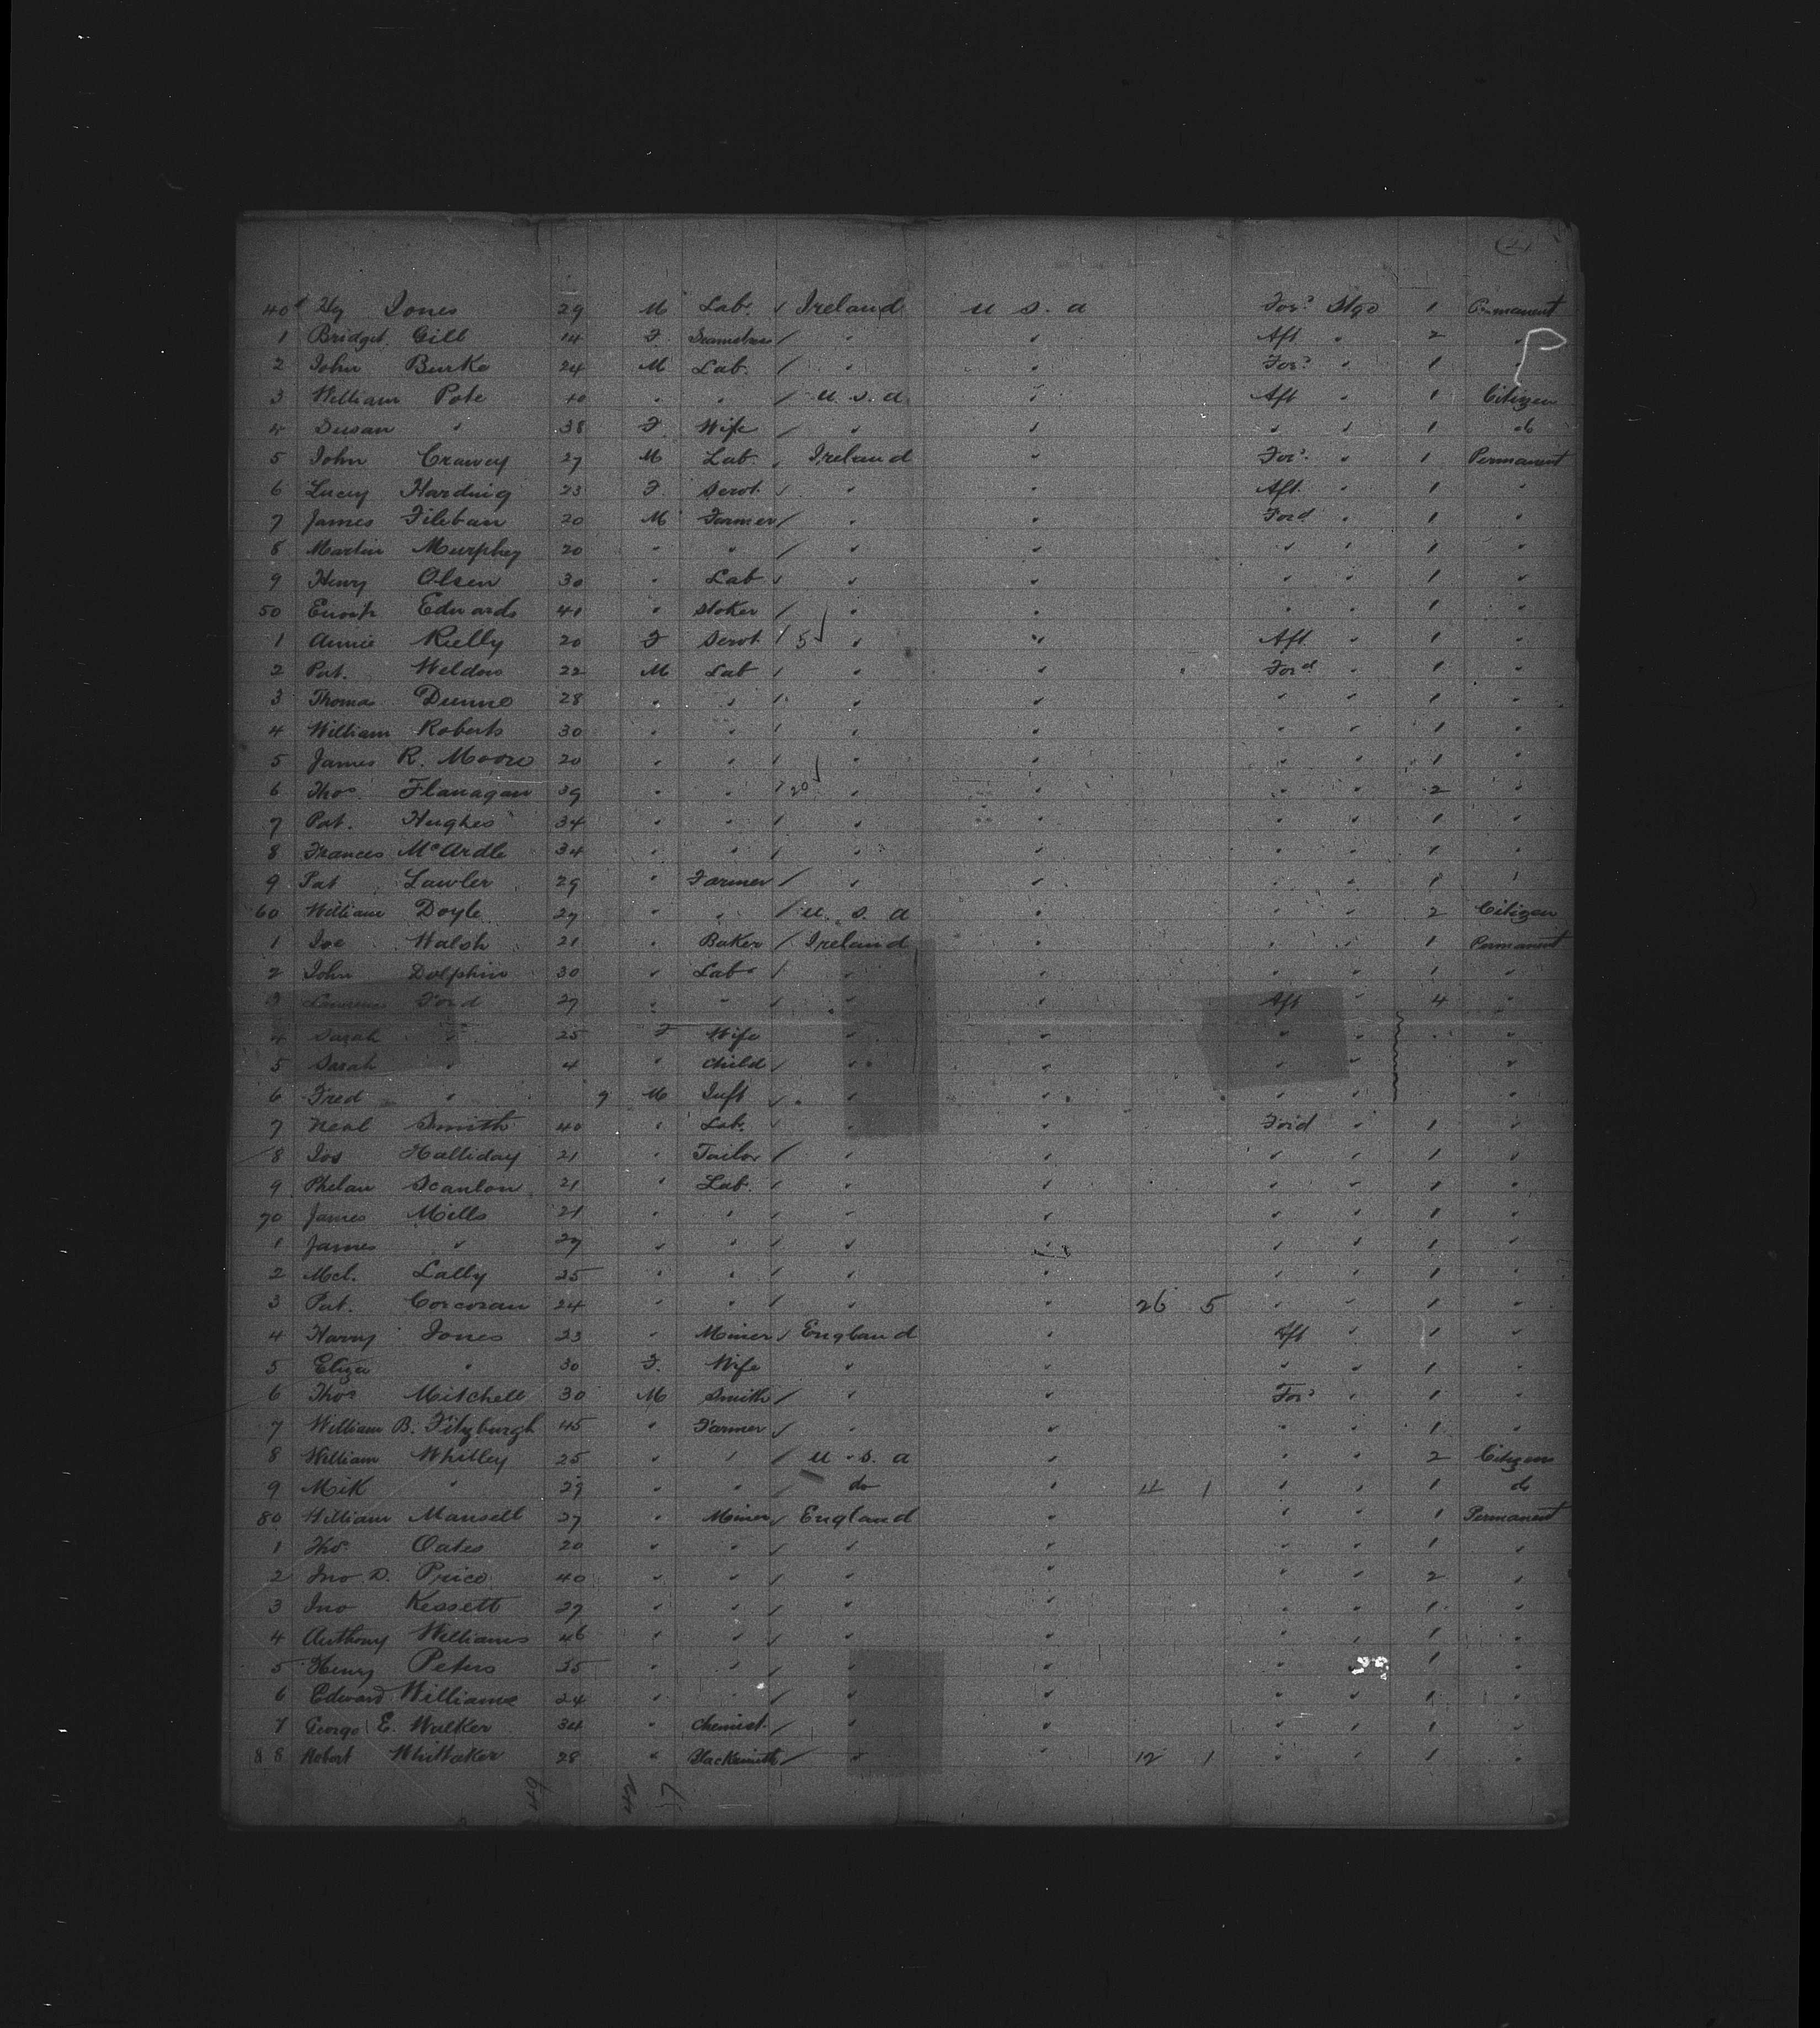 40 Hy Jones 29 M Lab. Ireland U S. A For? Stge 1 Permanent
1 Bridget Gill 14 F. " " Aft " 2 "
2 John Burke 24 M Lab. " " For? " 1 "
3 William Pote 40 " " U. S. A " Aft " 1 Citizen
4 Susan " 38 F. Wife " " " " 1 do
5 John 27 M Lab. Ireland " For? " 1 Permanent
6 Lucy Harding 23 F. Servt. " " Aft. " 1 "
7 James 20 M Farmer " " Ford " 1 "
8 Martin Murphy 20 " " " " " " 1 "
9 Henry Olsen 30 " Lab " " " " 1 "
50 Enoch Edwards 41 " Stoker " " " " 1 "
1 Annie Rielly 20 F Servt. 5 " " Aft. " 1 "
2 Pat. Weldon 22 M Lab " " Ford " 1 "
3 Thomas Dunne 28 " " " " " " 1 "
4 William Roberts 30 " " " " " " 1 "
5 James R. Moore 20 " " " " " " 1 "
6 Thos. Flanagan 39 " " 20 " " " " 2 "
7 Pat. Hughes 34 " " " " " " 1 "
8 Frances McArdle 34 " " " " " " 1 "
9 Pat Lawler 29 " Farmer " " " " 1 "
60 William Doyle 27 " " U. S. A " " " 2 Citizen
1 Joe Walsh 21 " Baker Ireland " " " 1 Permanent
2 John Dolphin 30 " Lab " " " " 1 "
3 Lawrence Ford 27 " " " " Aft " 4 "
4 Sarah " 25 F Wife " " " " " "
5 Sarah " 4 " Child " " " " "
6 Fred " 9 M Inft " " " " "
7 Neal Smith 40 " Lab. " " Ford " 1 "
8 Jos Halliday 21 " Tailor " " " " 1 "
9 Phelan Scanlon 21 " Lab. " " " " 1 "
70 James Mills 21 " " " " " " 1 "
1 James " 27 " " " " " " 1 "
2 Mcl. Lally 25 " " " " " " 1 "
3 Pat. Corcoran 24 " " " " 26 5 " " 1 "
4 Harry Jones 23 " Miner England " Aft " 1 "
5 Eliza " 30 F. Wife " " " " 1 "
6 Thos Mitchell 30 M Smith " " For? " 1 "
7 William B. Fitzburgh 45 " Farmer " " " " 1 "
8 William Whitley 25 " " U. S. A " " " 2 Citizen
9 Mik " 29 " " do " 4 1 " " 1 do
80 William Mansell 27 " Miner England " " " 1 Permanent
1 Tho. Oates 20 " " " " " " 1 "
2 Jno. D. Price 40 " " " " " " 2 "
3 Jno Kessett 27 " " " " " " 1 "
4 Anthony Williams 46 " " " " " " 1 "
5 Henry Peters 35 " " " " " 1 "
6 Edward Williams 24 " " " " " " 1 "
7 George E. Walker 34 " Chemist. " " " " 1 "
88 Robert Whittaker 28 " Blacksmith " " 12 1 " " 1 "